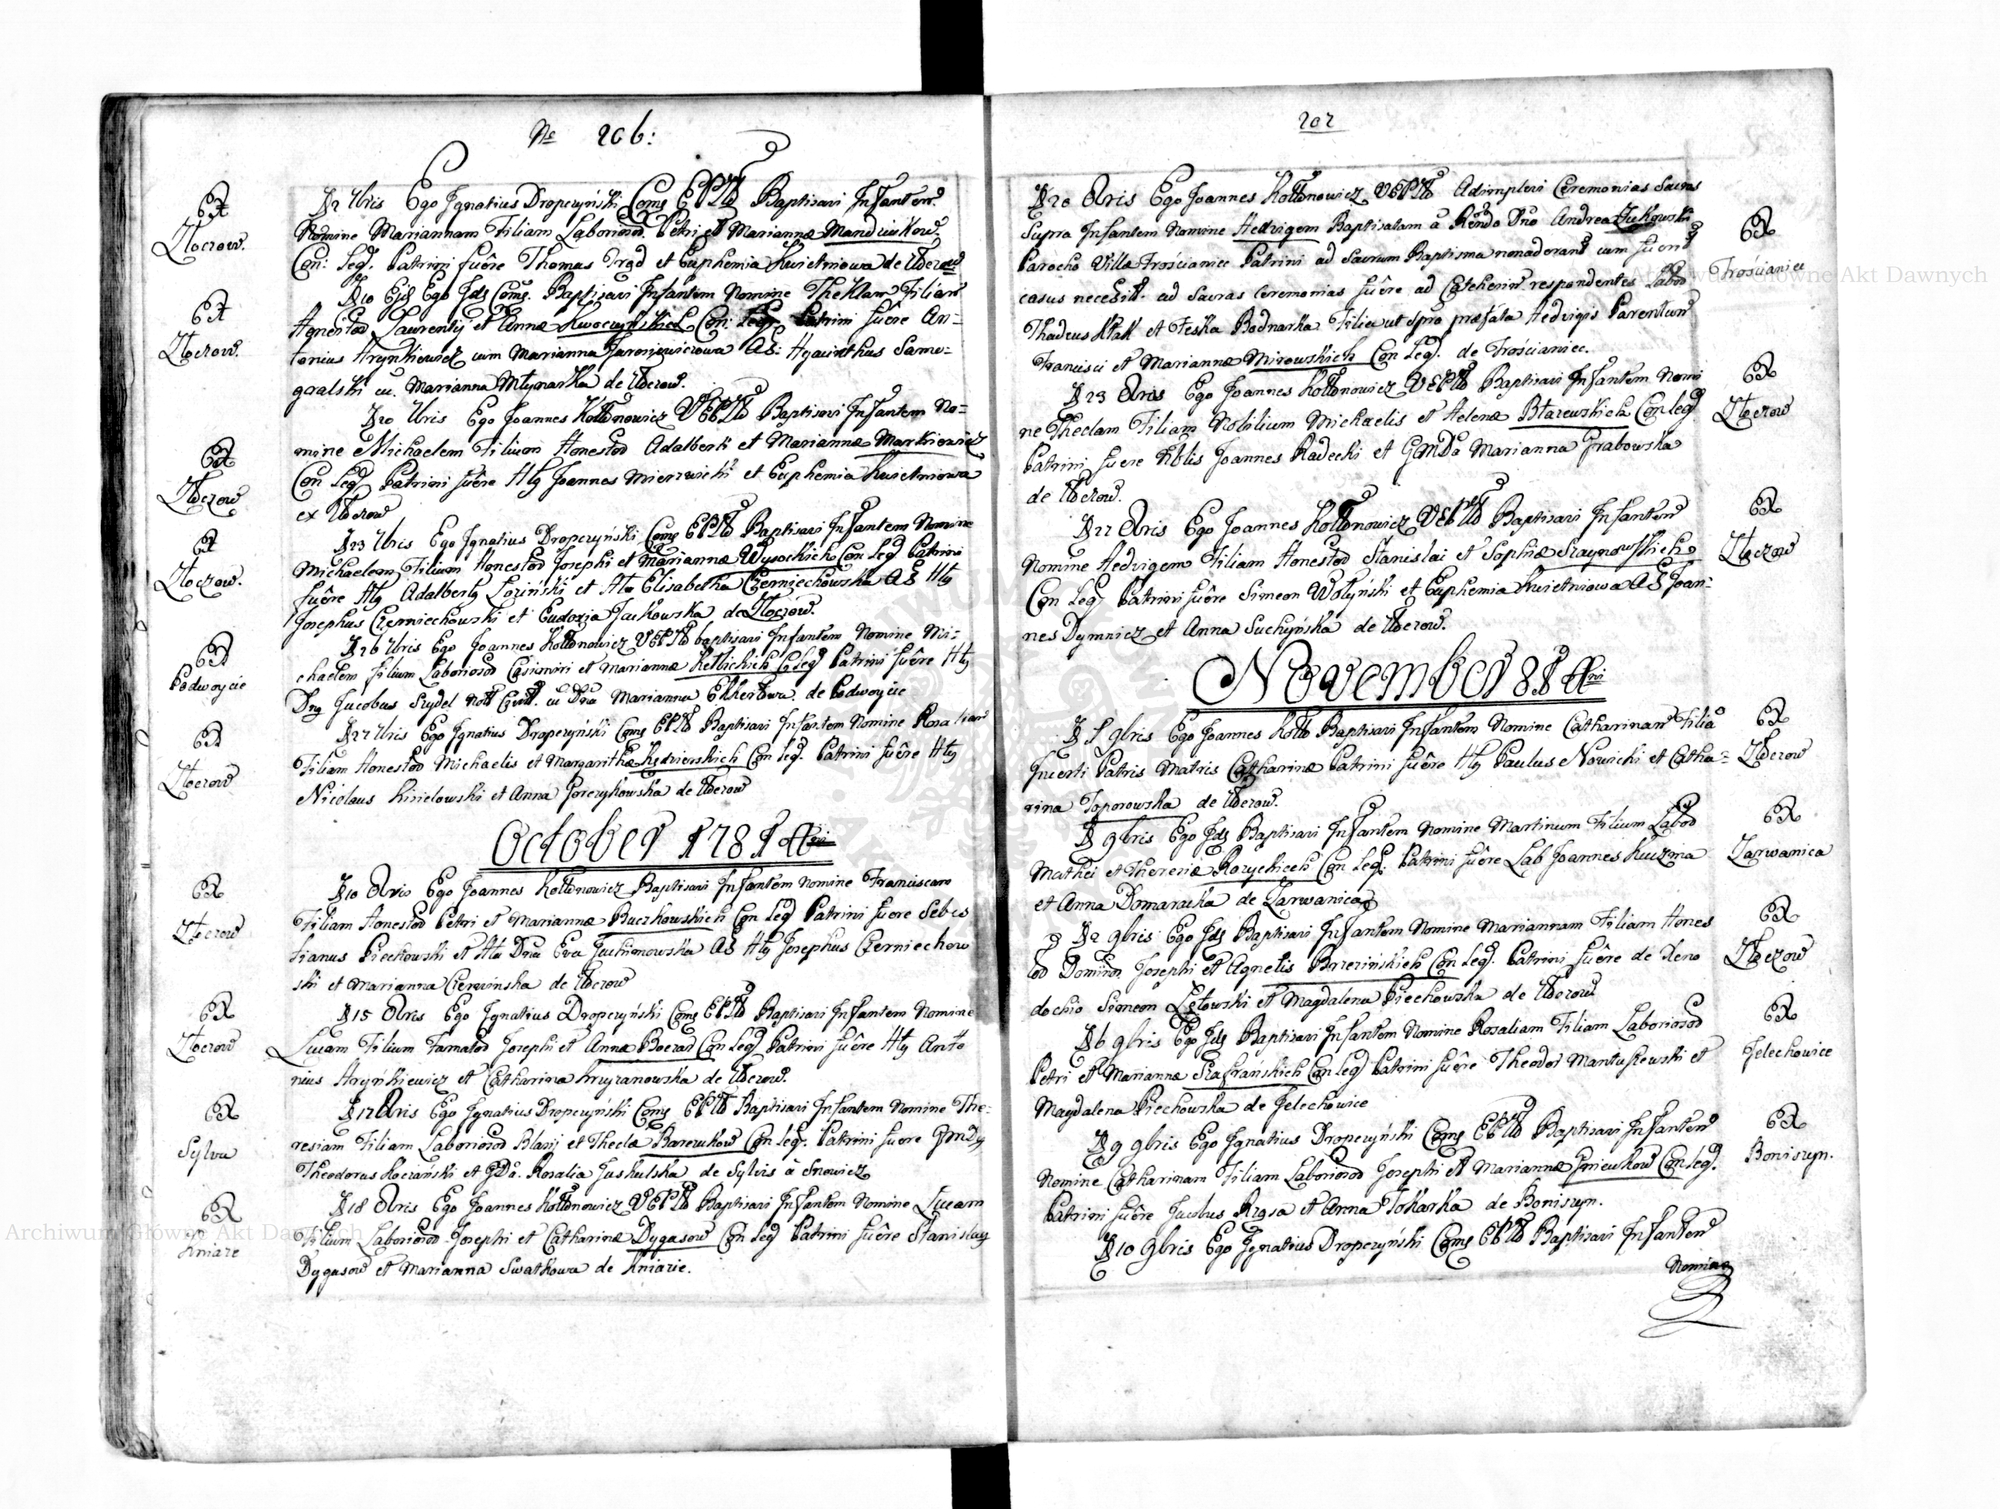 No 206:
Ex
Złoczow.
D 2 7bris Ego Ignatius Dropczyński Coms EPZł Baptisavi Infantem
Nomine Mariannam Filiam Laborios Petri et Mariannæ Mandziukow
Con: Leg. Patrini fuêre Thomas et Euphemia Kwietniowa de Złoczow
Ex
Złoczow.
D 10 Ejds Ego Ids Coms. Baptisavi Infantem Nomine Theklam Filiam
Honestor Laurentij et Annæ Con: Leg. Patrini fuêre An-
tonius Hrynkiewicz cum Marianna Jaroszewiczowa AS: Hyacinthus Samo-
goralski cu. Marianna Młynarka de Złoczow.
Ex
Złoczow
D 20 7bris Ego Joannes Kołłonowicz VEPZł Baptisavi Infantem No-
mine Michaelem Filium Honestor Adalberti et Mariannæ Markiewicz
Con Leg Patrini fuêre Hlg Joannes Mierzwicki et Euphemia Kwietniowa
ex Złoczow
Ex
Złoczow.
D 23 7bris Ego Ignatius Dropczyński Coms EPZł Baptisavi Infantem Nomine
Michaelem Filium Honestor Josephi et Mariannæ Wysockich Con Leg Patrini
fuêre Hlg Adalbertg Loziński et Hta Elisabetha Czerniechowska AS Hlg
Josephus Czerniechowski et Eudoxia Jackowska de Złoczow.
Ex
Podwoycie
D 26 7bris Ego Joannes Kołłonowicz VEPZł baptisavi Infantem Nomine Mi-
chaelem Filium Laboriosor Casimiri et Mariannæ Ketlickich C Leg Patrini fuêre Hlg
Dng Jacobus Szydel Nott Civitt. cu Dna Marianna Ekkertowa de Podwoycie
Ex
Złoczow
D 27 7bris Ego Ignatius Dropczyński Coms EPZł Baptisavi Infantem Nomine Rosaliam
Filiam Honestor Michaelis et Margarithæ Kedzierskich Con Leg. Patrini fuêre Hlg
Nicolaus Kisielowski et Anna Goreczkowska de Złoczow
October 1781 Ani
Ex
Złoczow
D 10 8bris Ego Joannes Kołłonowicz Baptisavi Infantem Nomine Franciscam
Filiam Honestor Petri et Mariannæ Buczkowskich Con Leg Patrini fuere Sebas
tianus Piechowski et Hta Dna Eva Jachimowska AS Hlg Josephus Czerniechow
ski et Marianna Czerwinska de Złoczow
Ex
Złoczow
D 15 8bris Ego Ignatius Dropczyński Coms EPZł Baptisavi Infantem Nomine
Lucam Filium Famator Josephi et Annæ Boerad Con Leg Patrini fuêre Hlg Anto
nius Hryńkiewicz et Catharina Kryzanowska de Złoczow.
Ex
Sylva
D 17 8bris Ego Ignatius Dropczyński Coms EPZł Baptisavi Infantem Nomine The-
resiam Filiam Laboriosor Blasij et Theclæ Con Leg. Patrini fuere
Theodorus Koczański et GDa. Rosalia Juskulska de Sylvis à Snowicz
Ex
Kniaze
D 18 8bris Ego Joannes Kołłonowicz VEPZł Baptisavi Infantem Nomine Lucam
Filium Laborioso Josephi et Catharinæ Dygasow Con Leg Patrini fuêre Stanislaus
Dygasow et Marianna Swatkowa de Kniazie.
207
D 20 8bris Ego Joannes Kołłonowicz VEPZł Adimplevi Ceremonias Sacras
Supra Infantem Nomine Hedvigem Baptisatam à Rendo Dno Andrea Żukowski
Parocho Villæ Trościaniec Patrini ad Sacrum Baptisma non aderant cum fuerit
casus necessit. ad Sacras Ceremonias fuêre ad Catechesim respondentes Labor
Thadeus Ptak et Feska Bodnarka Filia ut supra præfata Hedvigis Parentum
Francisci et Mariannæ Mirowskich Con Leg. de Trościaniec.
Ex
Trościaniec
D 23 8bris Ego Joannes Kołłonowicz VEPZł Baptisavi Infantem Nomi
ne Theclam Filiam Nobilium Michaelis et Helenæ Błazewskich Con Leg
Patrini fuere Nblis Joannes Radecki et GMDa Marianna Grabowska
de Złoczow.
Ex
Złoczow
D 27 8bris Ego Joannes Kołłonowicz VEPZł Baptisavi Infantem
Nomine Hedvigem Filiam Honestor Stanislai et Sophiæ Szaynowskich
Con Leg Patrini fuêre Simeon Wołyński et Euphemia Kwietniowa AS Joan-
nes Dymnicz et Anna Suchyńska de Złoczow.
Ex
Złoczow
November 1781 Ani
D 1 9bris Ego Joannes Kołło Baptisavi Infantem Nomine Catharinam Filia
Incerti Patris Matris Catharinæ Patrini fuêre Hlg Paulus Nowicki et Catha-
rina Toporowska de Złoczow.
Ex
Złoczow
D 9bris Ego Ids Baptisavi Infantem Nomine Martinum Filium Labor
Mathei et Theresiæ Kozyckich Con Leg. Patrini fuêre Lab Joannes Kuzma
et Anna Domaracka de Zarwanica
Ex
Zarwanica
D 2 9bris Ego Ids Baptisavi Infantem Nomine Mariannam Filiam Hones
tor Dominor Josephi et Agnetis Brzezińskich Con Leg. Patrini fuêre de Xeno
dochio Simeon Lętowski et Magdalena Piechowska de Złoczow
Ex
Złoczow
D 6 9bris Ego Ids Baptisavi Infantem Nomine Rosaliam Filiam Laboriosor
Petri et Mariannæ Szafrańskich Con Leg Patrini fuêre Theodor Mantuszewski et
Magdalena Piechowska de Jelechowice
Ex
Jelechowice
D 9 9bris Ego Ignatius Dropczyński Coms EPZł Baptisavi Infantem
Nomine Catharinam Filiam Laboriosor Josephi et Mariannæ Con Leg.
Patrini fuêre Jacobus et Anna Tokarka de Boniszyn.
Ex
Boniszyn.
D 10 9bris Ego Ignatius Dropczyński Coms EPZł Baptisavi Infantem
Nomine
Archiwum Główne Akt Dawnych
Archiwum Główne Akt Dawnych